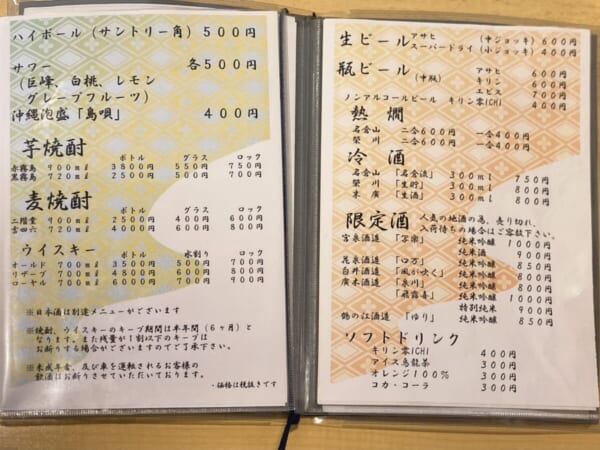 ハイボール（サントリー角）500円
サワー 各500円
（巨峰、白桃、レモン
グレープフルーツ）
沖縄泡盛「島唄」 400円
芋焼酎
ボトル グラス ロック
赤霧島 900mℓ 3800円 550円 750円
黒霧島 720mℓ 2500円 500円 700円
麦焼酎
ボトル グラス ロック
二階堂 900mℓ 2500円 400円 600円
吉四六 720mℓ 4000円 600円 800円
ウイスキー
ボトル 水割り ロック
オールド 700mℓ 3500円 500円 700円
リザーブ 700mℓ 4800円 600円 800円
ローヤル 700mℓ 6000円 700円 900円
※日本酒は別途メニューがございます
※焼酎、ウイスキーのキープ期間は半年間（6ヶ月）と
なります。また残量が1割以下のキープは
お断りする場合がございますのでご了承下さい。
※未成年者、及び車を運転されるお客様の
飲酒はお断りさせていただいております。
・価格は税抜きです
生ビール アサヒ （中ジョッキ）600円
スーパードライ（小ジョッキ）400円
瓶ビール（中瓶） アサヒ 600円
キリン 600円
エビス 700円
ノンアルコールビール キリン零ICHI 400円
熱燗
名倉山 二合600円 一合400円
榮川 二合600円 一合400円
冷酒
名倉山 「名倉流」 300ml 750円
榮川 「生貯」 300ml 800円
末廣 「生酒」 300ml 800円
限定酒 人気の地酒の為、売り切れ、
入荷待ちの場合はご容赦下さい。
宮泉酒造 「写楽」 純米吟醸 1000円
純米酒 900円
花泉酒造 「ロ万」 純米吟醸 850円
白井酒造 「風が吹く」 純米吟醸 800円
廣木酒造 「泉川」 純米吟醸 800円
「飛露喜」 純米吟醸 1000円
特別純米 900円
鶴の江酒造 「ゆり」 純米吟醸 850円
ソフトドリンク
キリン零ICHI 400円
アイス烏龍茶 300円
オレンジ100% 300円
コカ・コーラ 300円